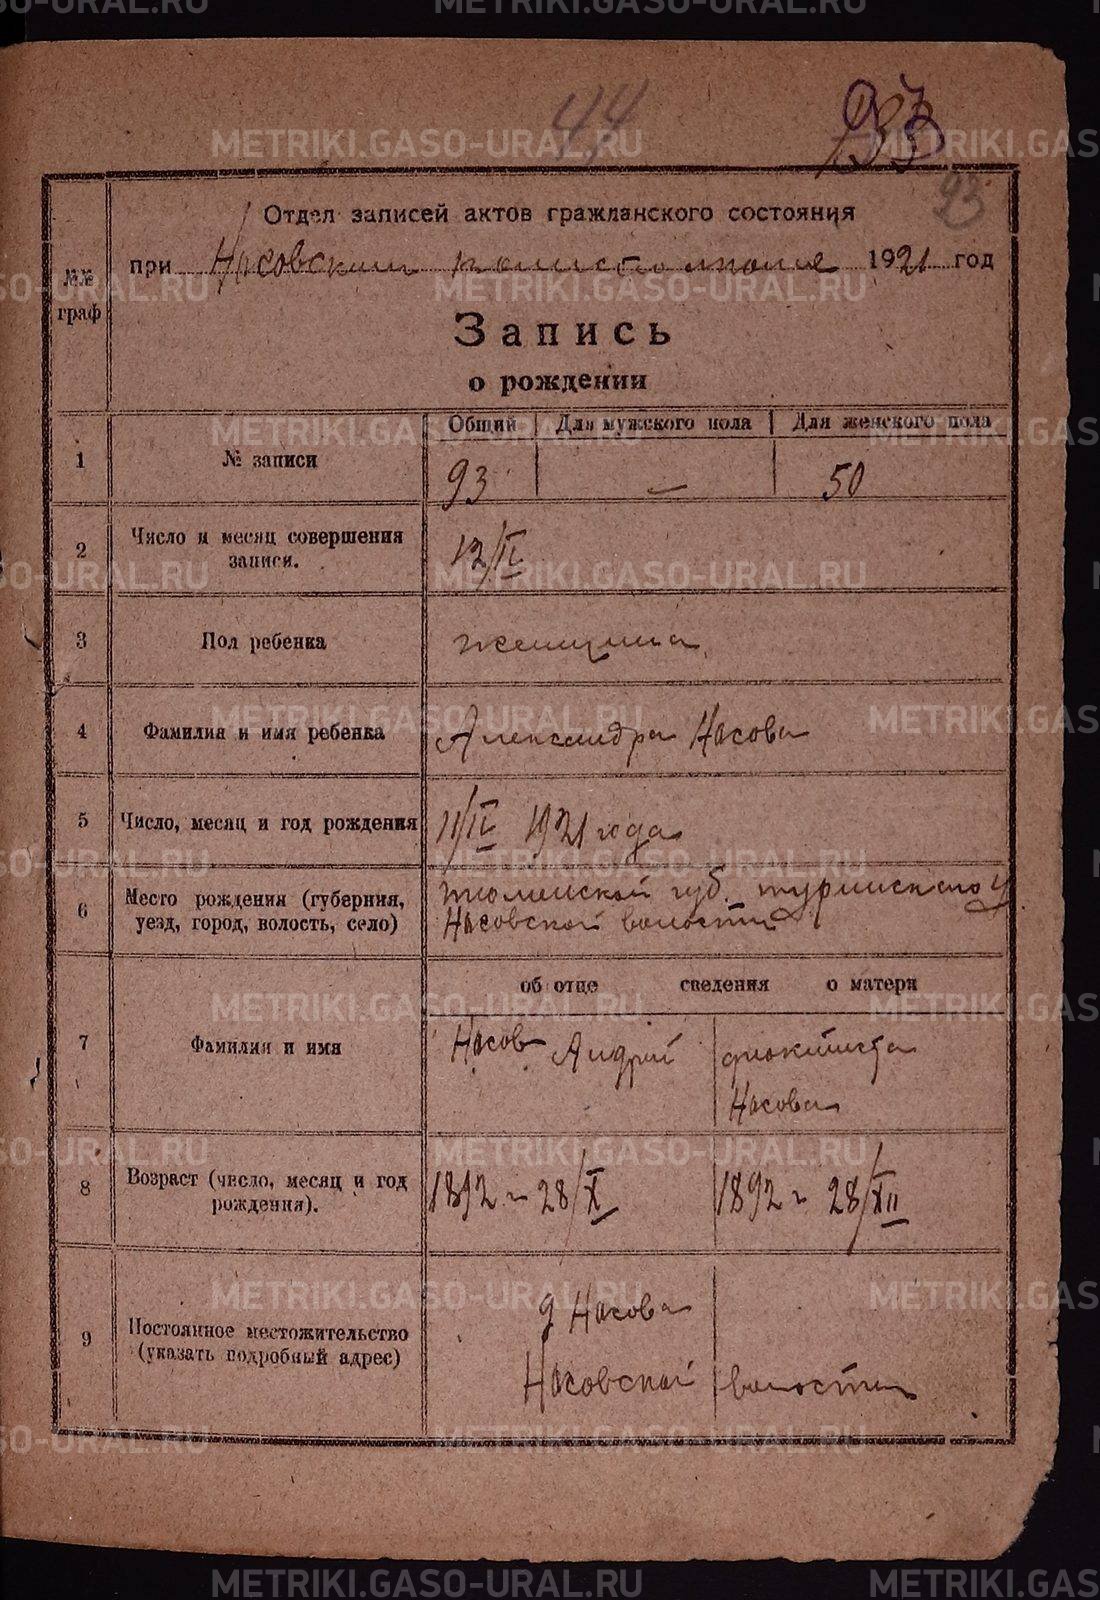 44
93
93
Отдел записей актов гражданского состояния
при Насовским 1921 год
№№
граф
Запись
о рождении
Общий Для мужского пола Для женского пола
1 № записи 93 — 50
2 Число и месяц совершения
записи. 12/IV
3 Пол ребенка женщина
4 Фамилия и имя ребенка Александра Насова
5 Число, месяц и год рождения 11/IV 1921 года
6 Место рождения (губерния, Тюменской губ. Туринского у
уезд, город, волость, село) Насовской волости
об отце сведения о матери
7 Фамилия и имя Насов Андрей
Насова
8 Возраст (число, месяц и год 1892 г 28/X 1892 г 28/XII
рождения).
9 Постоянное местожительство д Насова
(указать подробный адрес) Насовской волости
METRIKI.GASO-URAL.RU